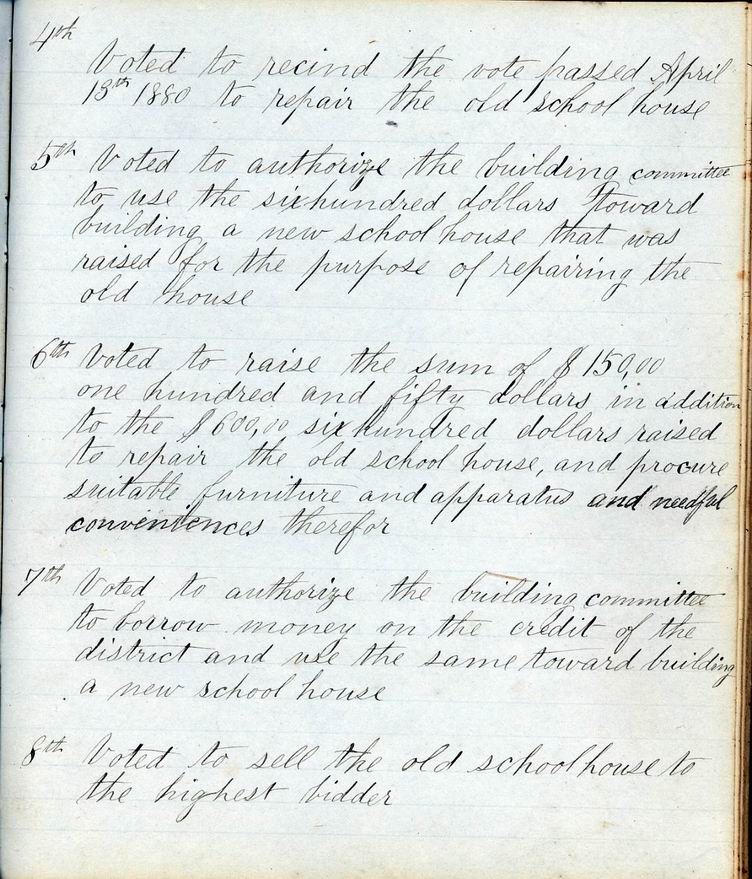 4th
Voted to recind the vote passed April
13th 1880 to repair the old school house
5th Voted to authorize the building committee
to use the sixhundred dollars toward
building a new school house that was
raised for the purpose of repairing the
old house
6th Voted to raise the sum of $150,00
one hundred and fifty dollars in addition
to the $600,00 six hundred dollars raised
to repair the old school house, and procure
suitable furniture and apparatus and needful
conveniences therefor
7th Voted to authorize the building committee
to borrow money on the credit of the
district and use the same toward building
a new school house
8th Voted to sell the old schoolhouse to
the highest bidder